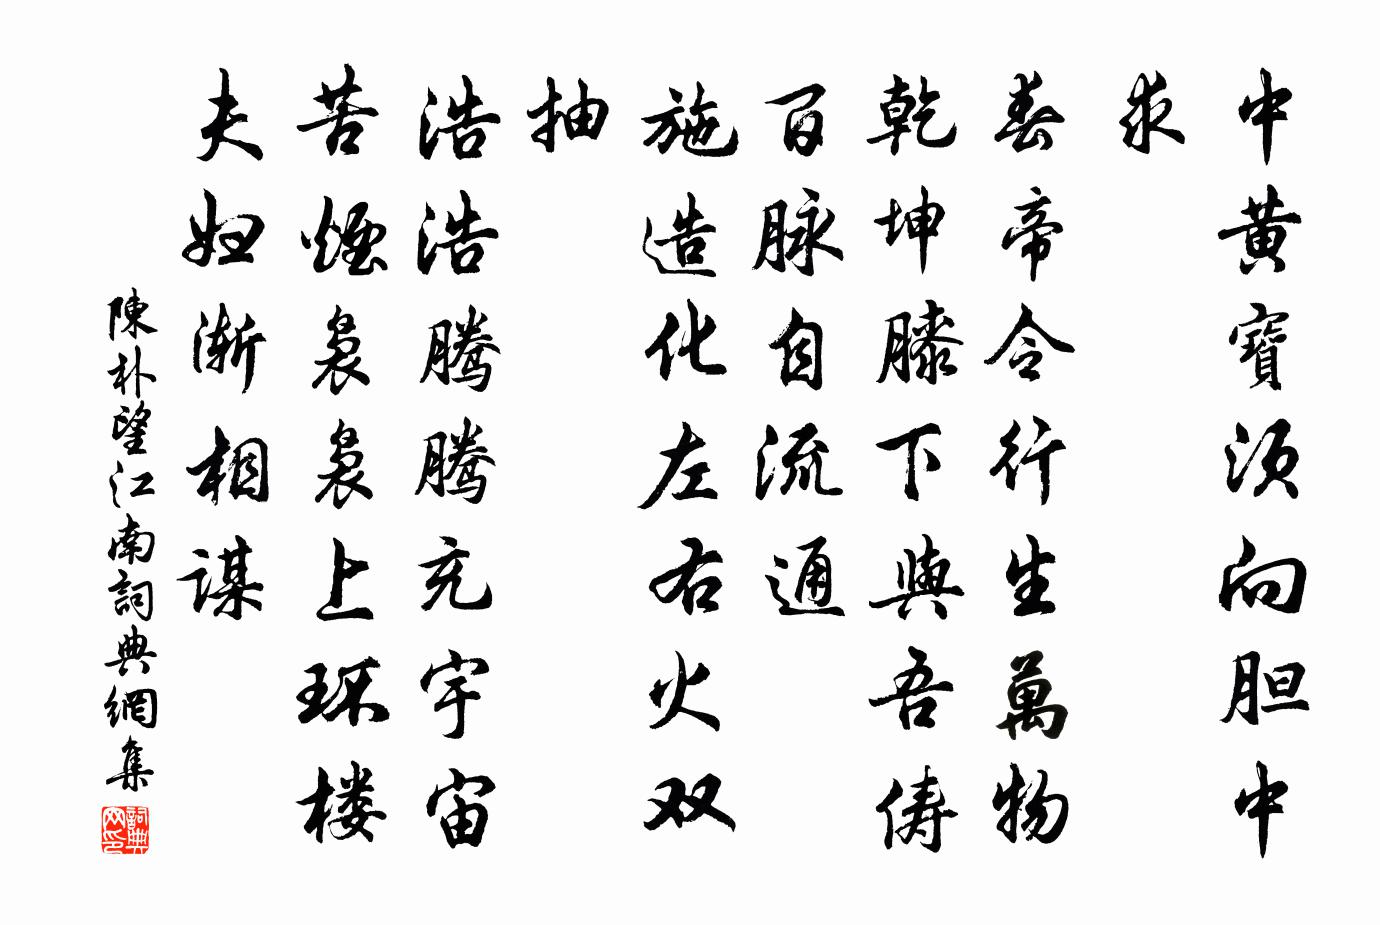 中黄寶须向胆中
求
春帝令行生萬物
乾坤膝下與吾俦
百脉自流通
施造化左右火双
抽
浩浩腾腾充宇宙
苦煙袅袅上环楼
夫妇渐相谋
陳朴望江南詞典網集
詞典网印